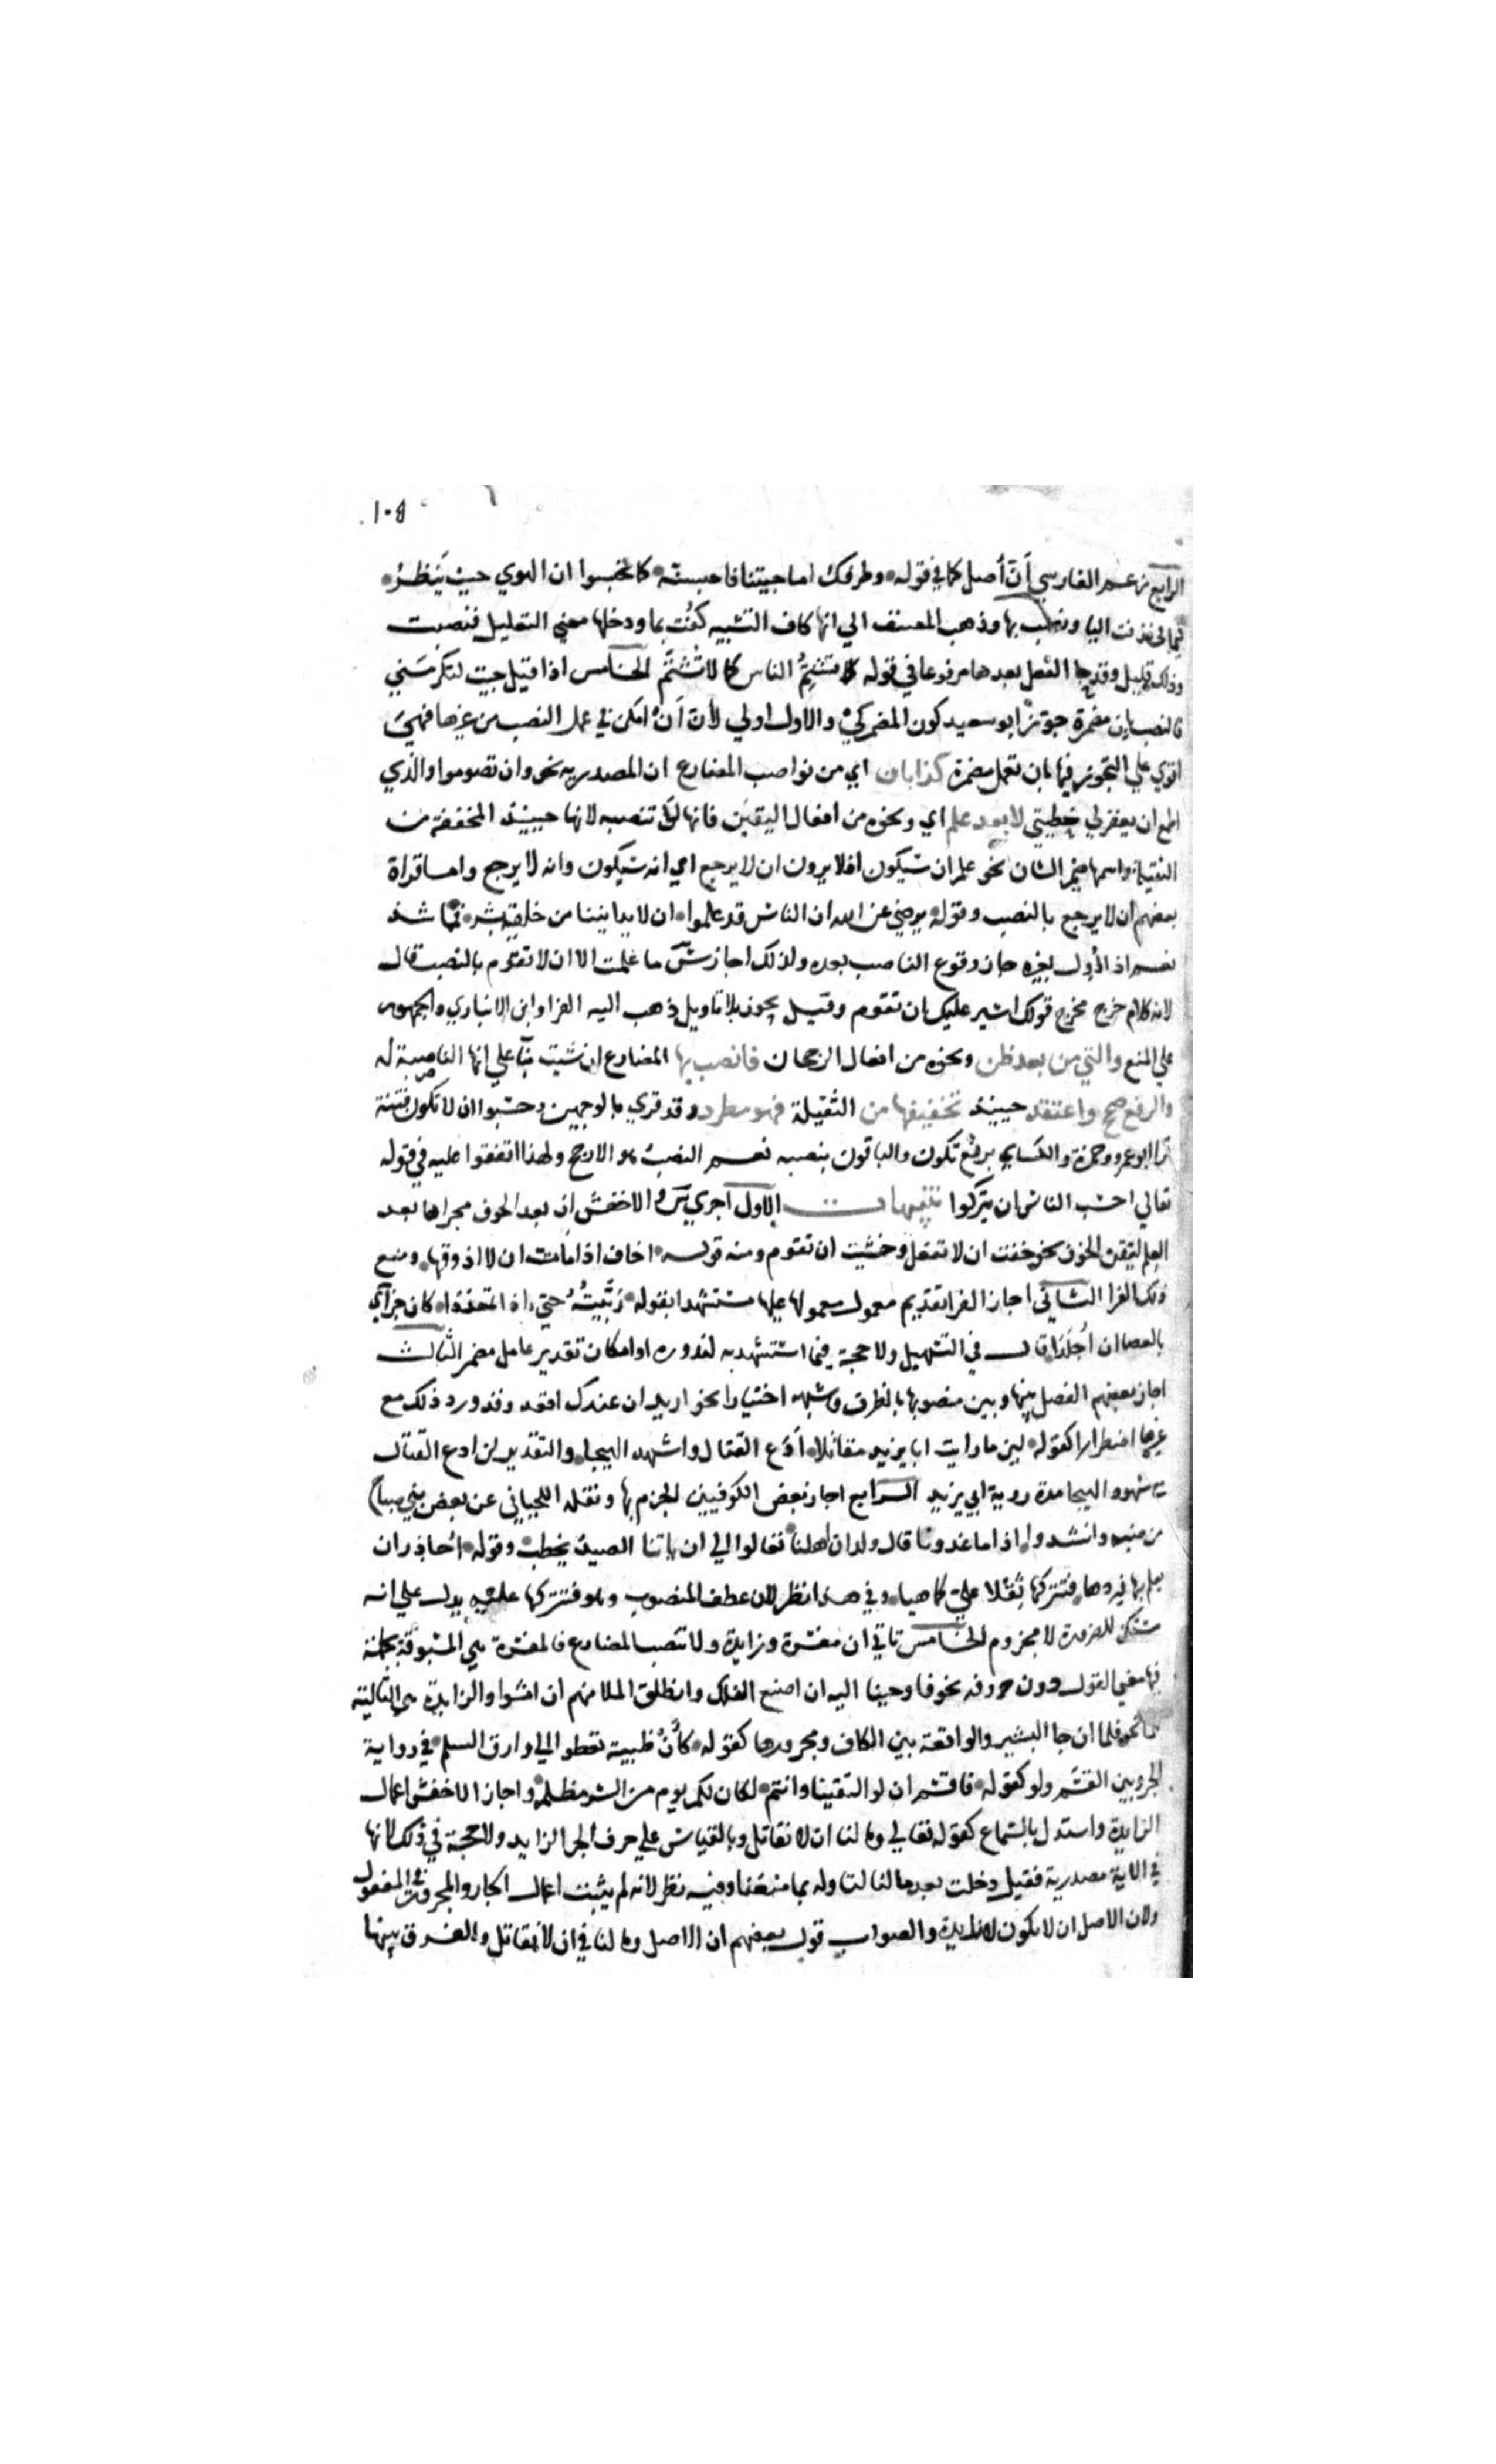 ١٠٥
الرابع زعم الفارسي أنّ أصل كما في قوله وطرفك اما جيتنا فاحبسنّه كما يحسبوا ان الهوي حيث تَنظرُ
كيما فحذفت اليا ونصب بها وذهب المصنف الي انها كاف التشبيه كفّت بما ودخلها معني التعليل فنصبت
وذلك قليل وقد جا الفعل بعدها مرفوعا في قوله لا تشتِمُ الناس كما لا تُشْتَمُ الخامس اذا قيل جيت لتكرمَني
فالنصب بان مضمرة وجوّز ابو سعيد كون المضمر كيْ والاول اولي لأنّ أَنْ امكن في عمل النصب من غيرها فهيَ
اقوي علي التجوز فيها بان تعمل مضمرة كذا بان اي من نواصب المضارع ان المصدريه نحو وان تصوموا والذي
اطمع ان يغفر لي خطيتي لا بعد علم اي ونحوه من افعال اليقين فانها لا تنصبه لانها حينيذ المخففة من
الثقيلة واسمها ضمير الشان نحو علم ان سيكون افلا يرون ان لا يرجع اي انه سيكون وانه لا يرجع واما قراة
بعضهم ان لا يرجع بالنصب وقوله يرضي عن الله ان الناس قد علموا ان لا يدانينا من خلقه بشر فمما شذ
نعم اذا أُوِل بغيره جاز وقوع الناصب بعده ولذلك اجاز سّ ما علمت الا ان لا تقوم بالنصب قال
لانه كلام خرج مخرج قولك اشير عليك بان تقوم وقيل يجوز بلا تاويل ذهب اليه الفرا وابن الانباري والجمهور
علي المنع والتي من بعد ظن ونحوه من افعال الرجحان فانصب بها المضارع ان شيت بنآ علي انها الناصبة له
والرفع صح واعتقد حينيذ تخفيفها من الثقيلة فهو مطرد وقد قري بالوجهين وحسبوا ان لا تكون فتنة
قرا ابو عمرو وحمزة والكساي برفع تكون والباقون بنصبه نعم النصب هو الارجح ولهذا اتفقوا عليه في قوله
تعالي احسب الناس ان يتركوا تنبيهات الاول اجري سّ والاخفش ان بعد الخوف مجراها بعد
العلم لتيقن الخوف نحو خفت ان لا تفعل وخشيت ان تقوم ومنه قوله اخاف اذا مامت ان لا اذوقها ومنع
ذلك الفرا الثاني اجاز الفرا تقديم معمول معمولها عليها مستشهدا بقوله رَبَّيتُهُ حتي اذا تمعددا كان جزآي
بالعصا ان اُجْلَدَا قال في التسهيل ولا حجة فيما استشهد به لندوره او امكان تقدير عامل مضمر الثالث
اجاز بعضهم الفصل بينها وبين منصوبها بالظرف وشبهه اختيارا نحو اريد ان عندك اقعد وقد ورد ذلك مع
غيرها اضطرارا كقوله لين ما رايت ابا يزيد مقاتلا اَدَع القتال واشهد الهيجا والتقدير لن ادع القتال
شهود الهيجا مدة روية ابي يزيد الرابع اجاز بعض الكوفيين الجزم بها ونقله اللحياني عن بعض بني صباح
من ضبه وانشدوا اذا ما غدونا قال ولدان اهلنا تعالوا الي ان ياتنا الصيد نحطب وقوله اُحاذر ان
تعلم بها فتردها فتتركها ثِقْلا عليّ كما هيا وفي هذا نظر لان عطف المنصوب وهو فتتركها عليه يدل علي انه
سكن للضرورة لا مجزوم الخامس تاتي ان مفسّرة وزايدة ولا تنصب المضارع فالمفسرة هي المسبوقة بجملة
فيها معني القول دون حروفه نحو فاوحينا اليه ان اصنع الفلك وانطلق الملا منهم ان امشوا والزايدة هي التالية
لما نحو فلما ان جا البشير والواقعة بين الكاف ومجرورها كقوله كأَنْ ظبية تعطو الي وارق السلم في رواية
الجر وبين القسَم ولو كقوله فاقسم ان لو التقينا وانتم لكان لكم يوم من الشر مظلم واجاز الاخفش اعمال
الزايدة واستدل بالسماع كقوله تعالي وما لنا ان لا نقاتل وبالقياس علي حرف الجر الزايد ولا حجة في ذلك لانها
في الاية مصدرية فقيل دخلت بعد ما لنا لتاوله بما منعنا وفيه نظر لانه لم يثبت اعمال الجار والمجرور في المفعول
ولان الاصل ان لا تكون لا زايدة والصواب قول بعضهم ان الاصل وما لنا في ان لا نقاتل والفرق بينها